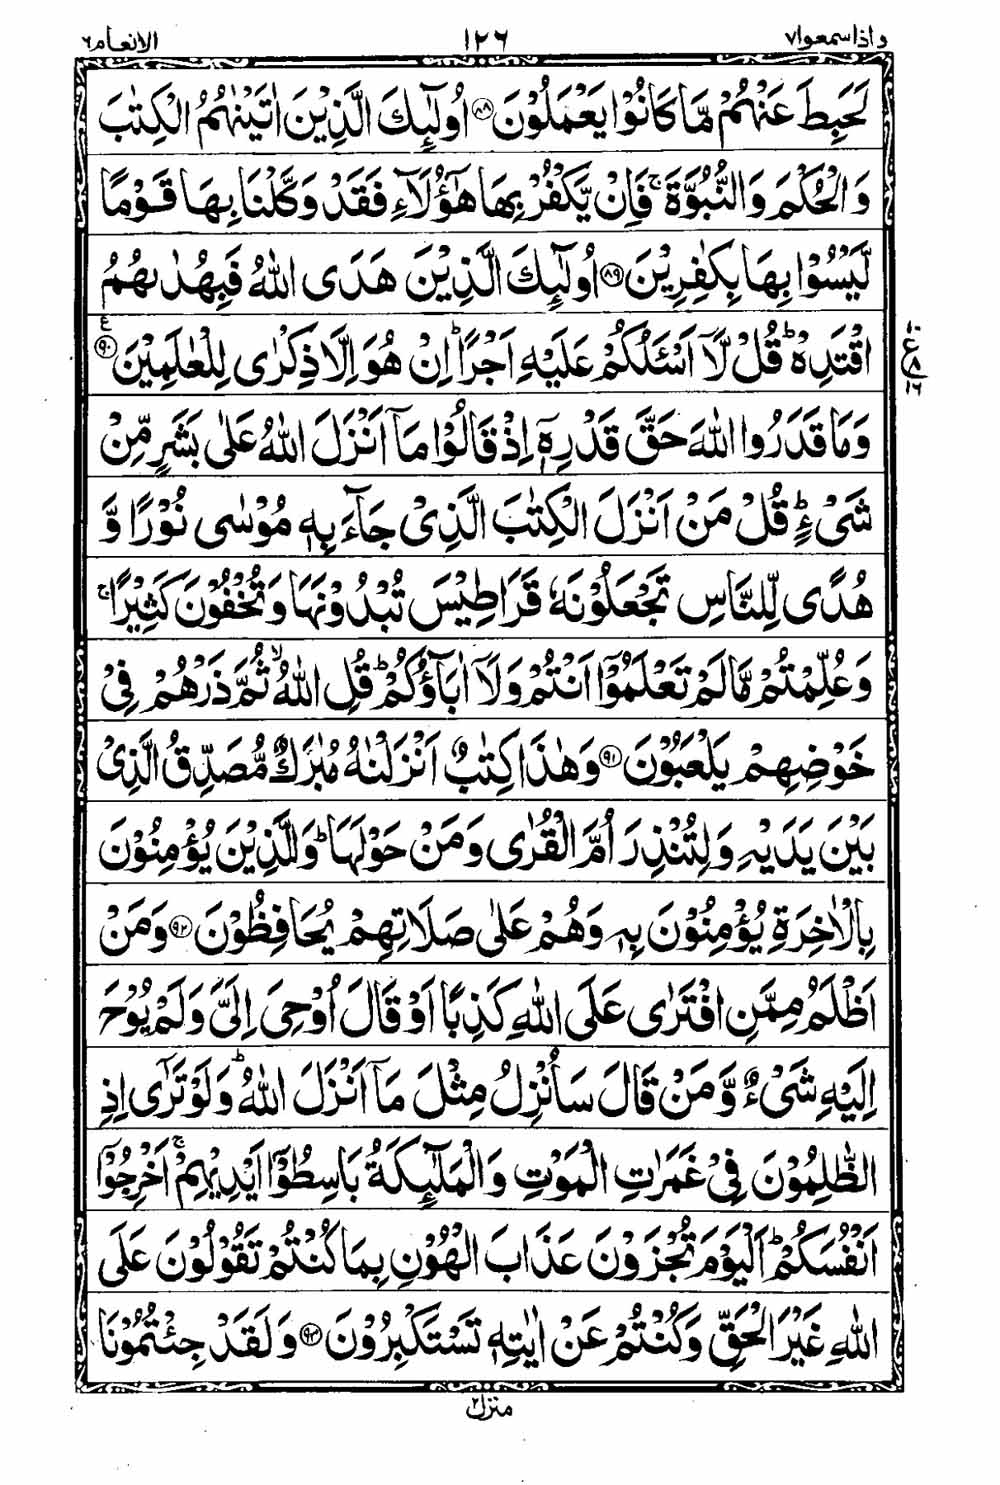 واذاسمعوا۷ ۱۲۶ الانعام۶
لَحَبِطَ عَنْهُمْ مَّا كَانُوْا يَعْمَلُوْنَ ﴿۸۸﴾ اُولٰٓئِكَ الَّذِيْنَ اٰتَيْنٰهُمُ الْكِتٰبَ
وَالْحُكْمَ وَالنُّبُوَّةَ ۚ فَاِنْ يَّكْفُرْ بِهَا هٰٓؤُلَآءِ فَقَدْ وَكَّلْنَا بِهَا قَوْمًا
لَّيْسُوْا بِهَا بِكٰفِرِيْنَ ﴿۸۹﴾ اُولٰٓئِكَ الَّذِيْنَ هَدَى اللّٰهُ فَبِهُدٰىهُمُ
اقْتَدِهْ ؕ قُلْ لَّاۤ اَسْـَٔلُكُمْ عَلَيْهِ اَجْرًا ؕ اِنْ هُوَ اِلَّا ذِكْرٰى لِلْعٰلَمِيْنَ ﴿۹۰﴾ ع
وَمَا قَدَرُوا اللّٰهَ حَقَّ قَدْرِهٖۤ اِذْ قَالُوْا مَاۤ اَنْزَلَ اللّٰهُ عَلٰى بَشَرٍ مِّنْ
شَىْءٍ ؕ قُلْ مَنْ اَنْزَلَ الْكِتٰبَ الَّذِىْ جَآءَ بِهٖ مُوْسٰى نُوْرًا وَّ
هُدًى لِّلنَّاسِ تَجْعَلُوْنَهٗ قَرَاطِيْسَ تُبْدُوْنَهَا وَتُخْفُوْنَ كَثِيْرًا ۚ
وَعُلِّمْتُمْ مَّا لَمْ تَعْلَمُوْۤا اَنْتُمْ وَلَاۤ اٰبَآؤُكُمْ ؕ قُلِ اللّٰهُ ۙ ثُمَّ ذَرْهُمْ فِىْ
خَوْضِهِمْ يَلْعَبُوْنَ ﴿۹۱﴾ وَهٰذَا كِتٰبٌ اَنْزَلْنٰهُ مُبٰرَكٌ مُّصَدِّقُ الَّذِىْ
بَيْنَ يَدَيْهِ وَلِتُنْذِرَ اُمَّ الْقُرٰى وَمَنْ حَوْلَهَا ؕ وَالَّذِيْنَ يُؤْمِنُوْنَ
بِالْاٰخِرَةِ يُؤْمِنُوْنَ بِهٖ وَهُمْ عَلٰى صَلَاتِهِمْ يُحَافِظُوْنَ ﴿۹۲﴾ وَمَنْ
اَظْلَمُ مِمَّنِ افْتَرٰى عَلَى اللّٰهِ كَذِبًا اَوْ قَالَ اُوْحِىَ اِلَىَّ وَلَمْ يُوْحَ
اِلَيْهِ شَىْءٌ وَّمَنْ قَالَ سَاُنْزِلُ مِثْلَ مَاۤ اَنْزَلَ اللّٰهُ ؕ وَلَوْ تَرٰٓى اِذِ
الظّٰلِمُوْنَ فِىْ غَمَرٰتِ الْمَوْتِ وَالْمَلٰٓئِكَةُ بَاسِطُوْۤا اَيْدِيْهِمْ ۚ اَخْرِجُوْۤا
اَنْفُسَكُمْ ؕ اَلْيَوْمَ تُجْزَوْنَ عَذَابَ الْهُوْنِ بِمَا كُنْتُمْ تَقُوْلُوْنَ عَلَى
اللّٰهِ غَيْرَ الْحَقِّ وَكُنْتُمْ عَنْ اٰيٰتِهٖ تَسْتَكْبِرُوْنَ ﴿۹۳﴾ وَلَقَدْ جِئْتُمُوْنَا
منزل۲